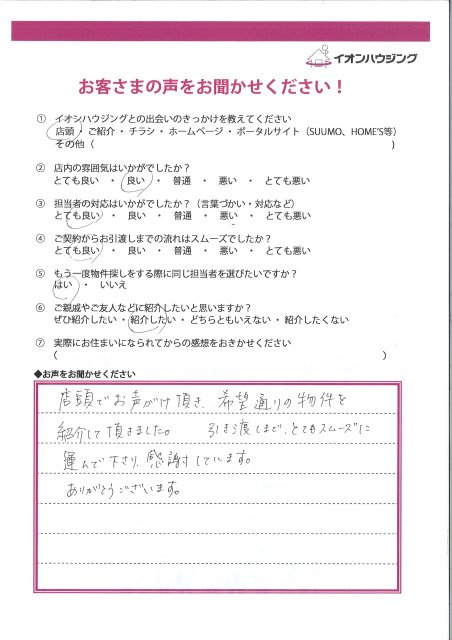 イオンハウジング
お客さまの声をお聞かせください！
① イオンハウジングとの出会いのきっかけを教えてください
店頭 ・ ご紹介 ・ チラシ ・ ホームページ ・ ポータルサイト（SUUMO、HOME'S等）
その他（ ）
② 店内の雰囲気はいかがでしたか？
とても良い ・ 良い ・ 普通 ・ 悪い ・ とても悪い
③ 担当者の対応はいかがでしたか？（言葉づかい・対応など）
とても良い ・ 良い ・ 普通 ・ 悪い ・ とても悪い
④ ご契約からお引渡しまでの流れはスムーズでしたか？
とても良い ・ 良い ・ 普通 ・ 悪い ・ とても悪い
⑤ もう一度物件探しをする際に同じ担当者を選びたいですか？
はい ・ いいえ
⑥ ご親戚やご友人などに紹介したいと思いますか？
ぜひ紹介したい ・ 紹介したい ・ どちらともいえない ・ 紹介したくない
⑦ 実際にお住まいになられてからの感想をおきかせください
（ ）
◆お声をお聞かせください
店頭でお声がけ頂き、希望通りの物件を
紹介して頂きました。 引き渡しまで、とてもスムーズに
運んで下さり、感謝しています。
ありがとうございます。